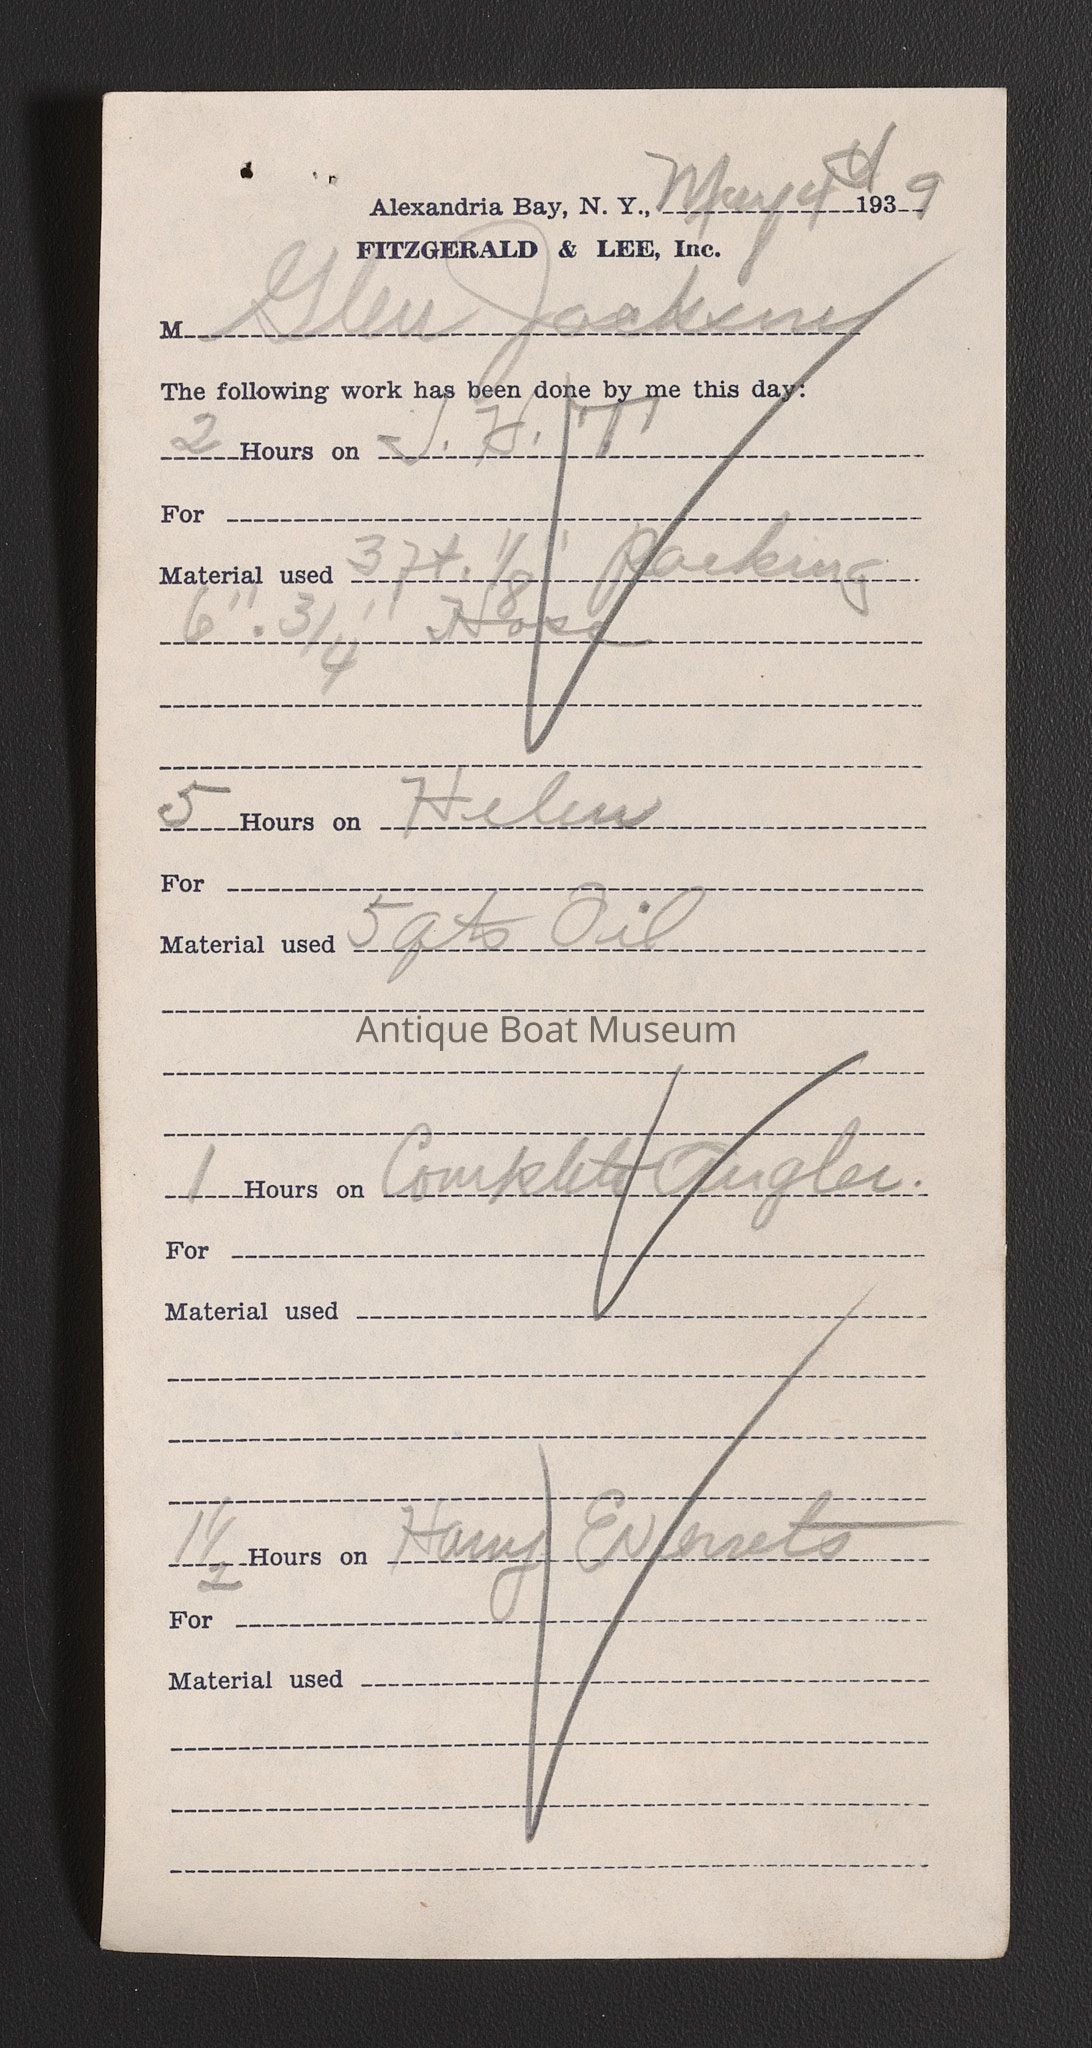 Alexandria Bay, N. Y., May 4th 1939
FITZGERALD & LEE, Inc.
M Glen Jackson
The following work has been done by me this day:
2 Hours on J. H. T.
For
Material used 3 ft. 1/8" packing
6". 3/4" Hose
5 Hours on Helen
For
Material used 5 qts Oil
Antique Boat Museum
1 Hours on Complete Angler.
For
Material used
1 1/2 Hours on Harry Everrets
For
Material used